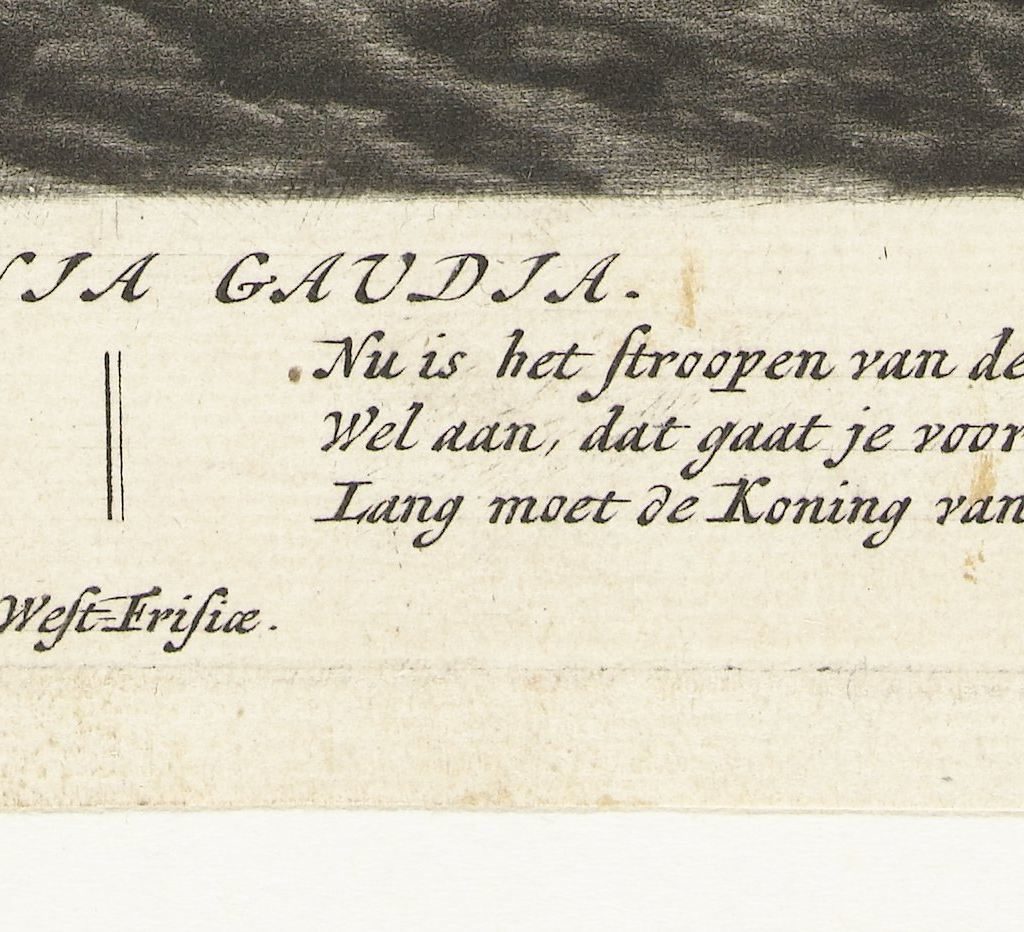 IA GAUDIA.
Nu is het ſtroopen van de
Wel aan, dat gaat je voor
Lang moet de Koning van
Weſt-Friſiæ.